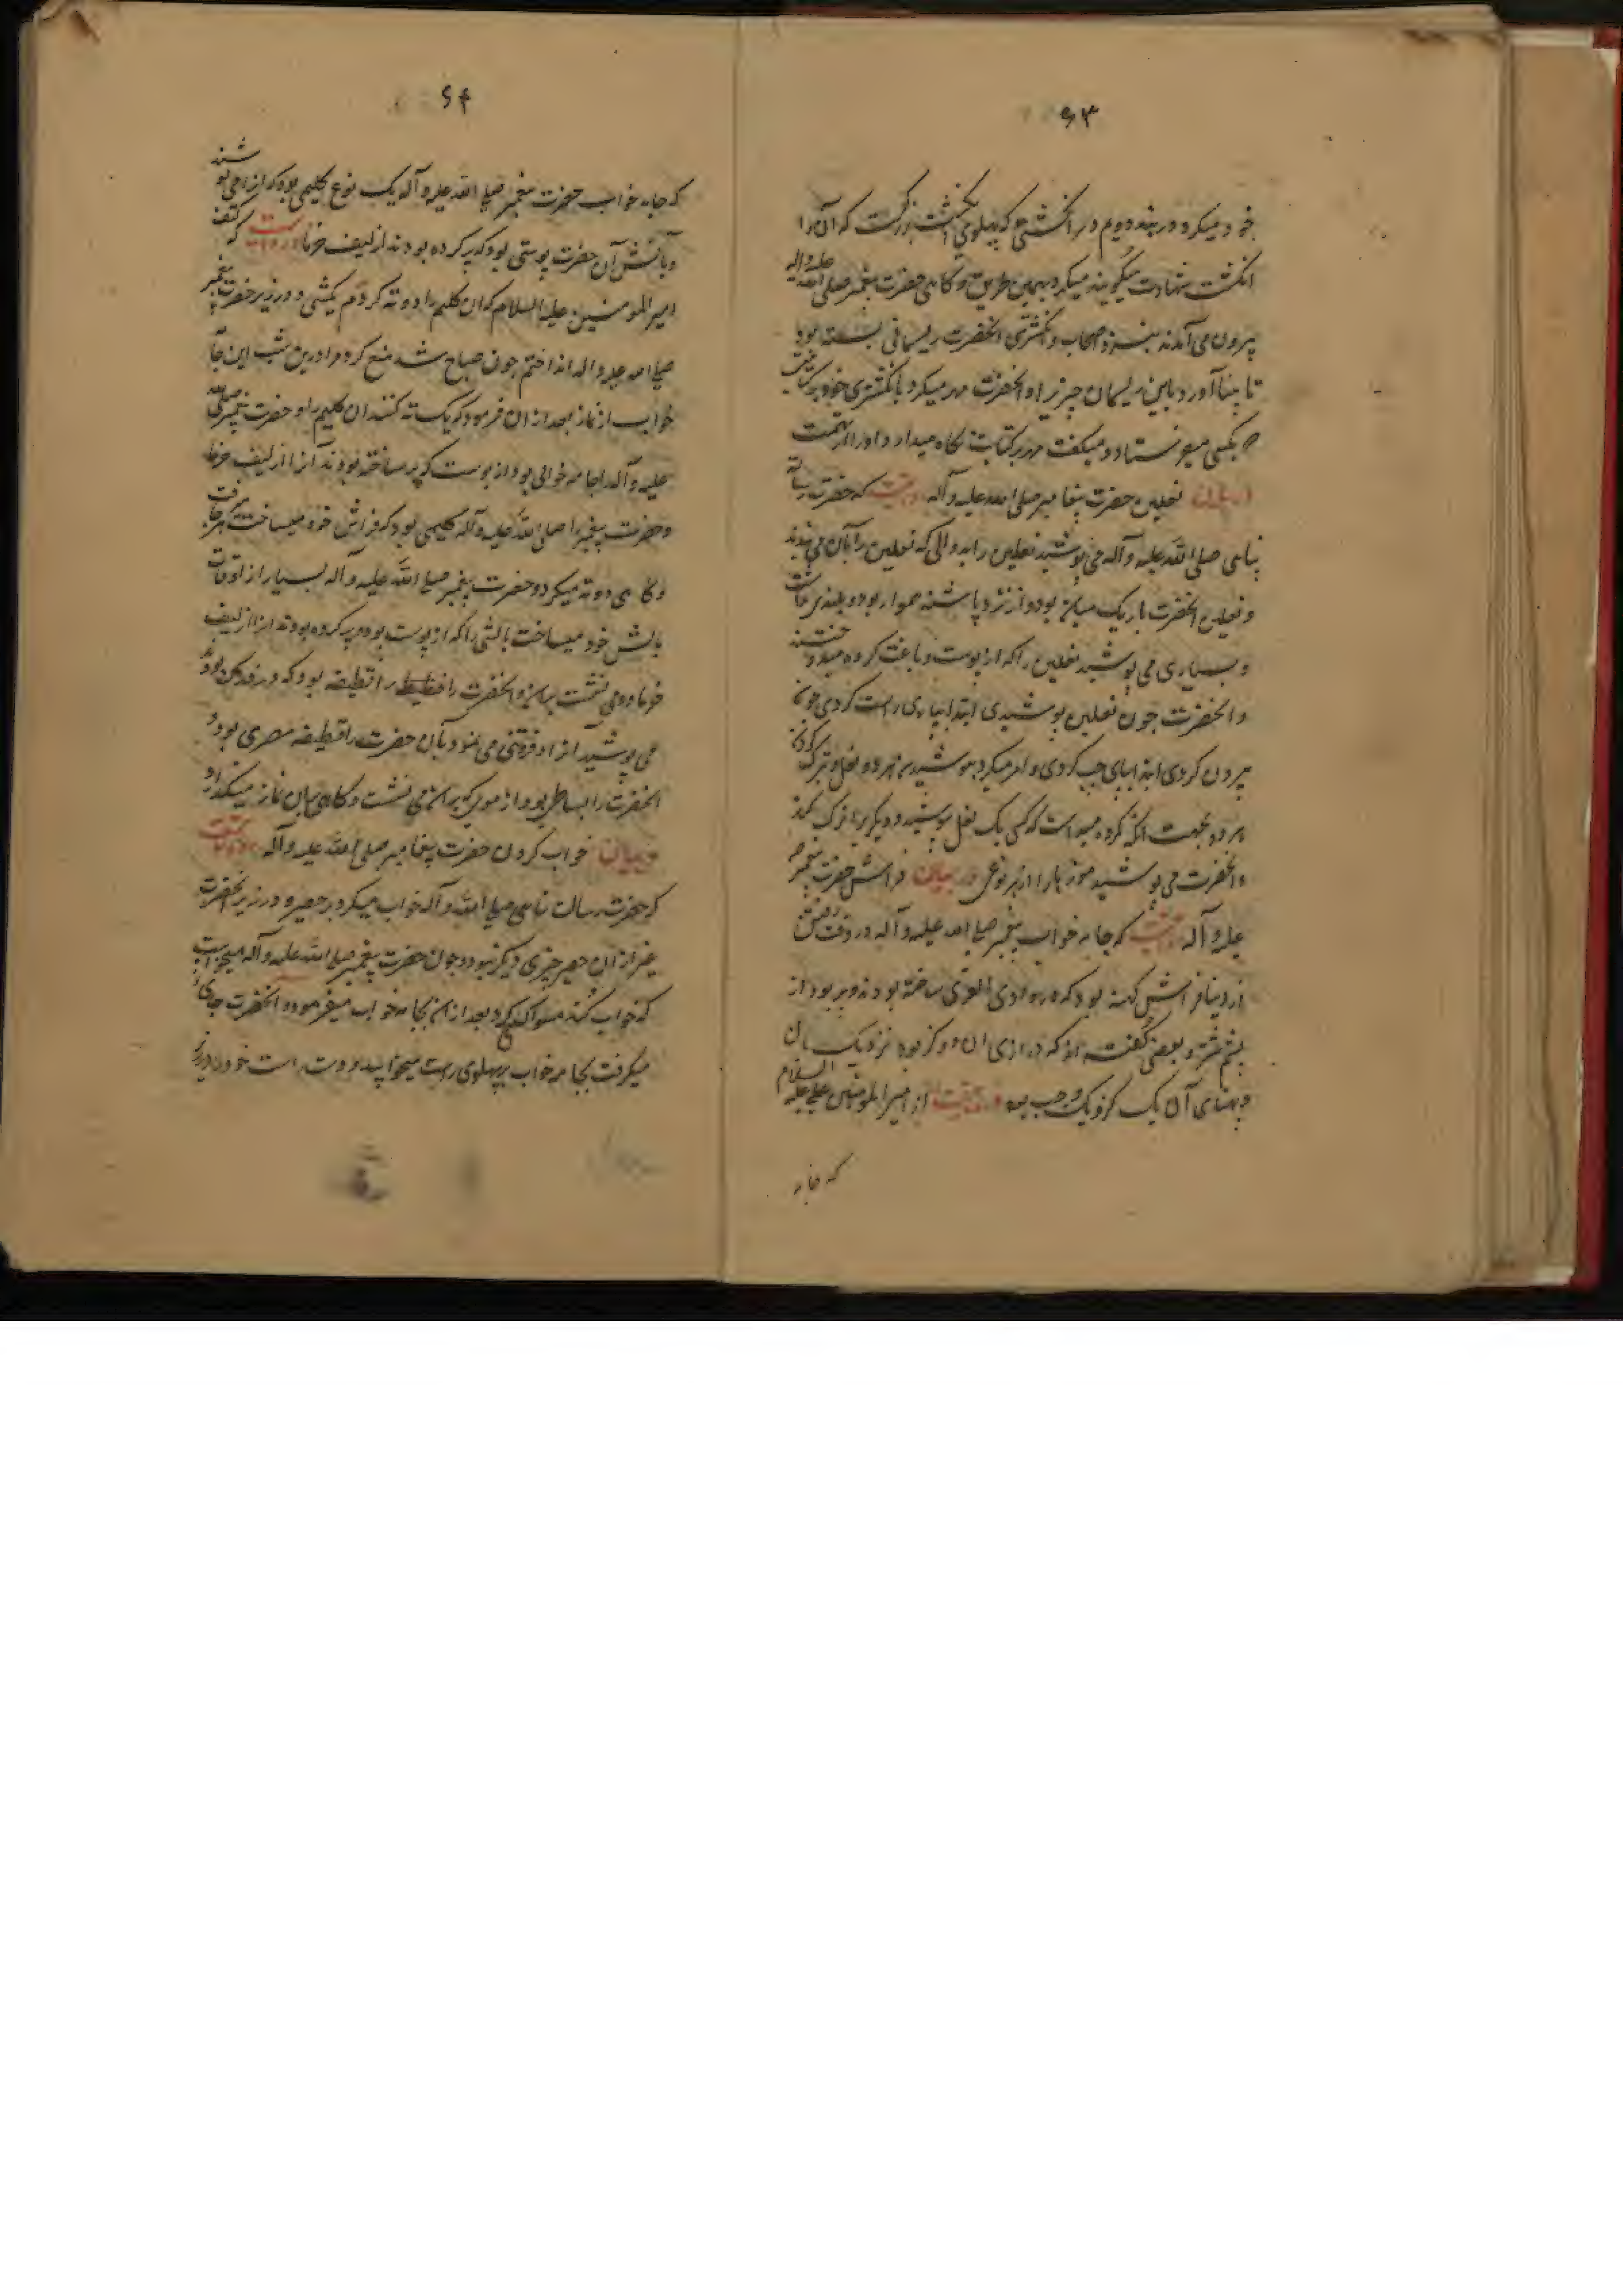 ۶۳
خود میکرد و در بند دویم در انگشتی که پهلوی انگشت بزرگست که آن را
انگشت شهادت میگویند میکرد بهمین طریق و کاهی حضرت پیغمبر صلی الله علیه و اله
بیرون می آمدند بنزد اصحاب و انکشتری انحضرت ریسمانی بسته بود
تا بیاد آورد باین ریسمان چیزیرا و انحضرت مهر میکرد بانکشتری خود بر کتابت
بکسی میفرستاد و میکفت مهر بر کتابت نکاه میدارد او را از تهمت
در بیان نعلین حضرت پیغامبر صلی الله علیه و آله روایتست که حضرت رسالت
پناهی صلی الله علیه و آله می پوشید نعلین را بدوالی که نعلین را بآن می بندند
و نعلین انحضرت باریک میان بود و از نزد پاشنه هموار بود و بلندی نداشت
و بسیاری می پوشید نعلین را که از پوست دباغت کرده میدوختند
و انحضرت چون نعلین پوشیدی ابتدا بپای راست کردی چون
بیرون کردی ابتدا بپای چپ کردی و امر میکرد بپوشیدن هر دو نعل و ترک کردن
هر دو بجهت انکه مکروه میداشت که کسی یک نعل بپوشید و دیگریرا ترک کند
و انحضرت می پوشید موزه ها را از هر نوعی در بیان فراش حضرت پیغمبر ص
علیه و آله روایتست که جامه خواب پیغمبر صلی الله علیه و آله در وقت رفتن
از دنیا فراش کهنه بود که در وادی القری ساخته بودند و پر بود از
پشم شتر و بعضی گفته اند که درازی ان دو کز بود نزدیک بان
و پهنای آن یک کز و یک وجب بود و روایتست از امیر المؤمنین علی علیه السلام
که جامه
۶۴
که جامه خواب حضرت پیغمبر صلی الله علیه و آله یک نوع کلیمی بود که انرا می پوشند
و بالش آن حضرت پوستی بود که پر کرده بودند از لیف خرما روایتست که گفت
امیر المومنین علیه السلام که ان کلیم را دو ته کردم یکشبی و در زیر حضرت پیغمبر
صلی الله علیه و اله انداختم چون صباح شد منع کرد مرا درین شب این جامه
خواب از نماز بعد از ان فرمود که یک ته کنند ان کلیم را و حضرت پیغمبر صلی الله
علیه و آله را جامه خوابی بود از پوست که پر ساخته بودند آنرا از لیف خرما
و حضرت پیغمبر را صلی الله علیه و آله کلیمی بود که فراش خود میساخت هر جا میرفت
و کاهی دو ته میکرد و حضرت پیغمبر صلی الله علیه و آله بسیار از اوقات
بالش خود میساخت بالشی را که از پوست بود و پر کرده بودند انرا از لیف
خرما و می نشست بران و انحضرت را قطیفه بود که در فدک
می پوشید آنرا و فروتنی می نمود بآن حضرت را قطیفه مصری بود
انحضرت را بساطی بود از موی که بران می نشست و کاهی بران نماز میکذارد
در بیان خواب کردن حضرت پیغامبر صلی الله علیه و آله روایتست
که حضرت رسالت پناهی صلی الله و آله خواب میکرد بر حصیر و در زیر انحضرت
غیر از ان حصیر چیزی دیگر نبود و چون حضرت پیغمبر صلی الله علیه و آله میخواست
که خواب کند مسواک میکرد و بعد از ان بجامه خواب میفرمود و انحضرت چون جای
میکرفت بجامه خواب بر پهلوی راست میخوابید و دست راست خود در زیر